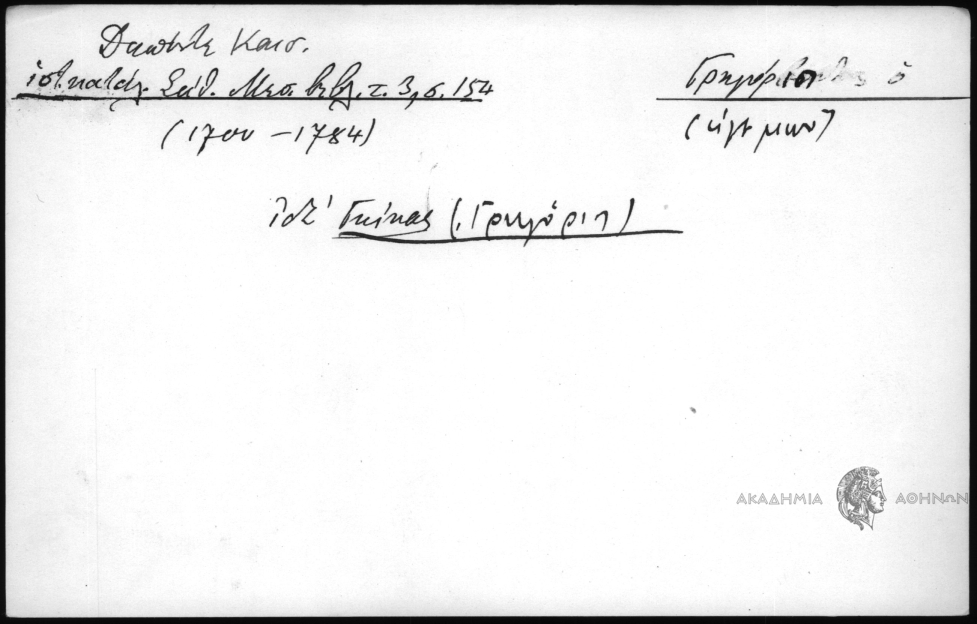 Δαπόντε Καισ.
ἱστ. κατάλ. Σάθ. Μεσ. βιβλ. τ. 3, σ. 154
(1700 – 1784)
Γρηγόριος ὁ
(ἡγεμὼν)
ἰδὲ Γκίκας (Γρηγόριη)
ΑΚΑΔΗΜΙΑ ΑΘΗΝΩΝ